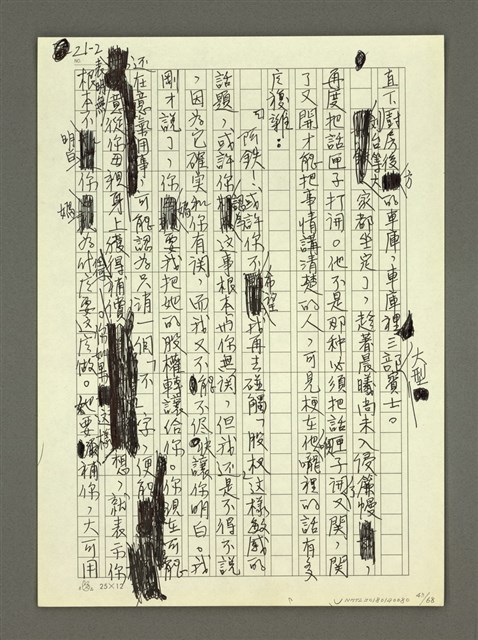 21-2
直下廚房後方的車庫，車庫裡三部大型賓士。
到台等大家都坐定了，趁著晨曦尚未入侵簾幔，
再度把話匣子打開。他不是那種必須把話匣子開又關，關
了又開才能把事情講清楚的人，可見梗在他喉嚨裡的話有多
麼複雜…
「阿鉄！或許你不希望我再去碰觸「股权」這樣敏感的
話題，或許你認為這事根本与你無関，但我还是不得不說
，因為它確实和你有関，而我又不能不儘快讓你明白。我
剛才說了，你媽要我把她的股權轉讓給你。你現在可能
还在意氣用事，可能認為只消一個「不」字，便能
表明無意從你母親身上獲得補償。你如果這樣想，就表示你
根本不明白你媽為什麼要這麼做。她要彌補你，大可用
25×12
NMTL20180140080
43/68